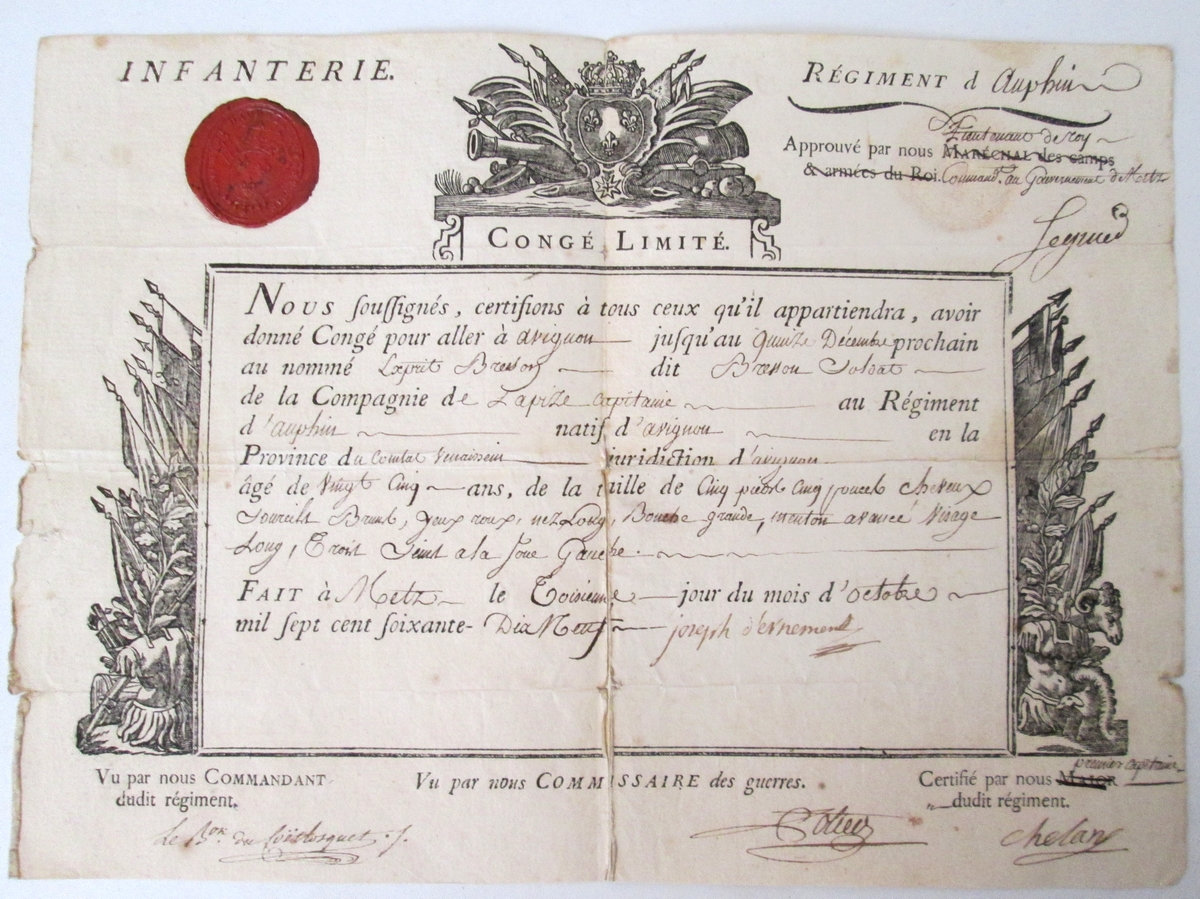 INFANTERIE.
RÉGIMENT d'auphin
Lieutenant de roy
Approuvé par nous MARÉCHAL des camps
& armées du Roi. Command.t au Gouvernement de Metz
CONGÉ LIMITÉ.
NOUS soussignés, certifions à tous ceux qu'il appartiendra, avoir
donné Congé pour aller à avignon jusqu'au quinze Décembre prochain
au nommé Esprit Bresson dit Bresson Soldat
de la Compagnie de Lapize capitaine au Régiment
d'auphin natif d'avignon en la
Province du Comtat Venaissin juridiction d'avignon
âgé de vingt cinq ans, de la taille de Cinq pieds Cinq pouces cheveux
Sourcils Bruns, yeux roux, nez Long, Bouche grande, menton avancé Visage
Long, Etroit Seint a la Joue Gauche.
FAIT à Metz le Troisieme jour du mois d'octobre
mil sept cent soixante- Dix Neuf joseph d'ernement
Vu par nous COMMANDANT
dudit régiment.
Vu par nous COMMISSAIRE des guerres.
premier capitaine
Certifié par nous MAJOR
dudit régiment.
Le B.on du Coëtlosquet
chelan